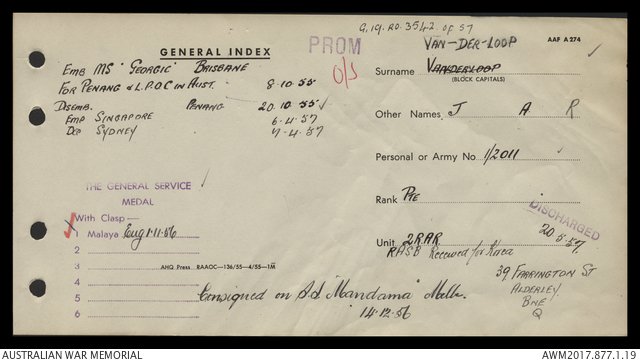 G.19. RO. 3542 OF 57
AAF A274
GENERAL INDEX
PROM
O/S
EMB MS "GEORGIC" BRISBANE
FOR PENANG & L.P.O.C IN AUST. 8.10.55
DISEMB. PENANG 20.10.55
EMP SINGAPORE 6.4.57
DEP SYDNEY 7.4.57
VAN-DER-LOOP
Surname VANDERLOOP
(BLOCK CAPITALS)
Other Names J A R
Personal or Army No 1/2011
Rank PTE
Unit 2RAR
DISCHARGED
20.5.57
RASB Received for Korea
39 FARRINGTON ST
ALDERLEY
BNE
Q
THE GENERAL SERVICE
MEDAL
With Clasp—
1 Malaya Eng 1.11.56
2
3
4
5
6
AHQ Press RAAOC—136/55—4/55—1M
Consigned on S.S. "Mandama" Melb.
14.12.56
AUSTRALIAN WAR MEMORIAL
AWM2017.877.1.19